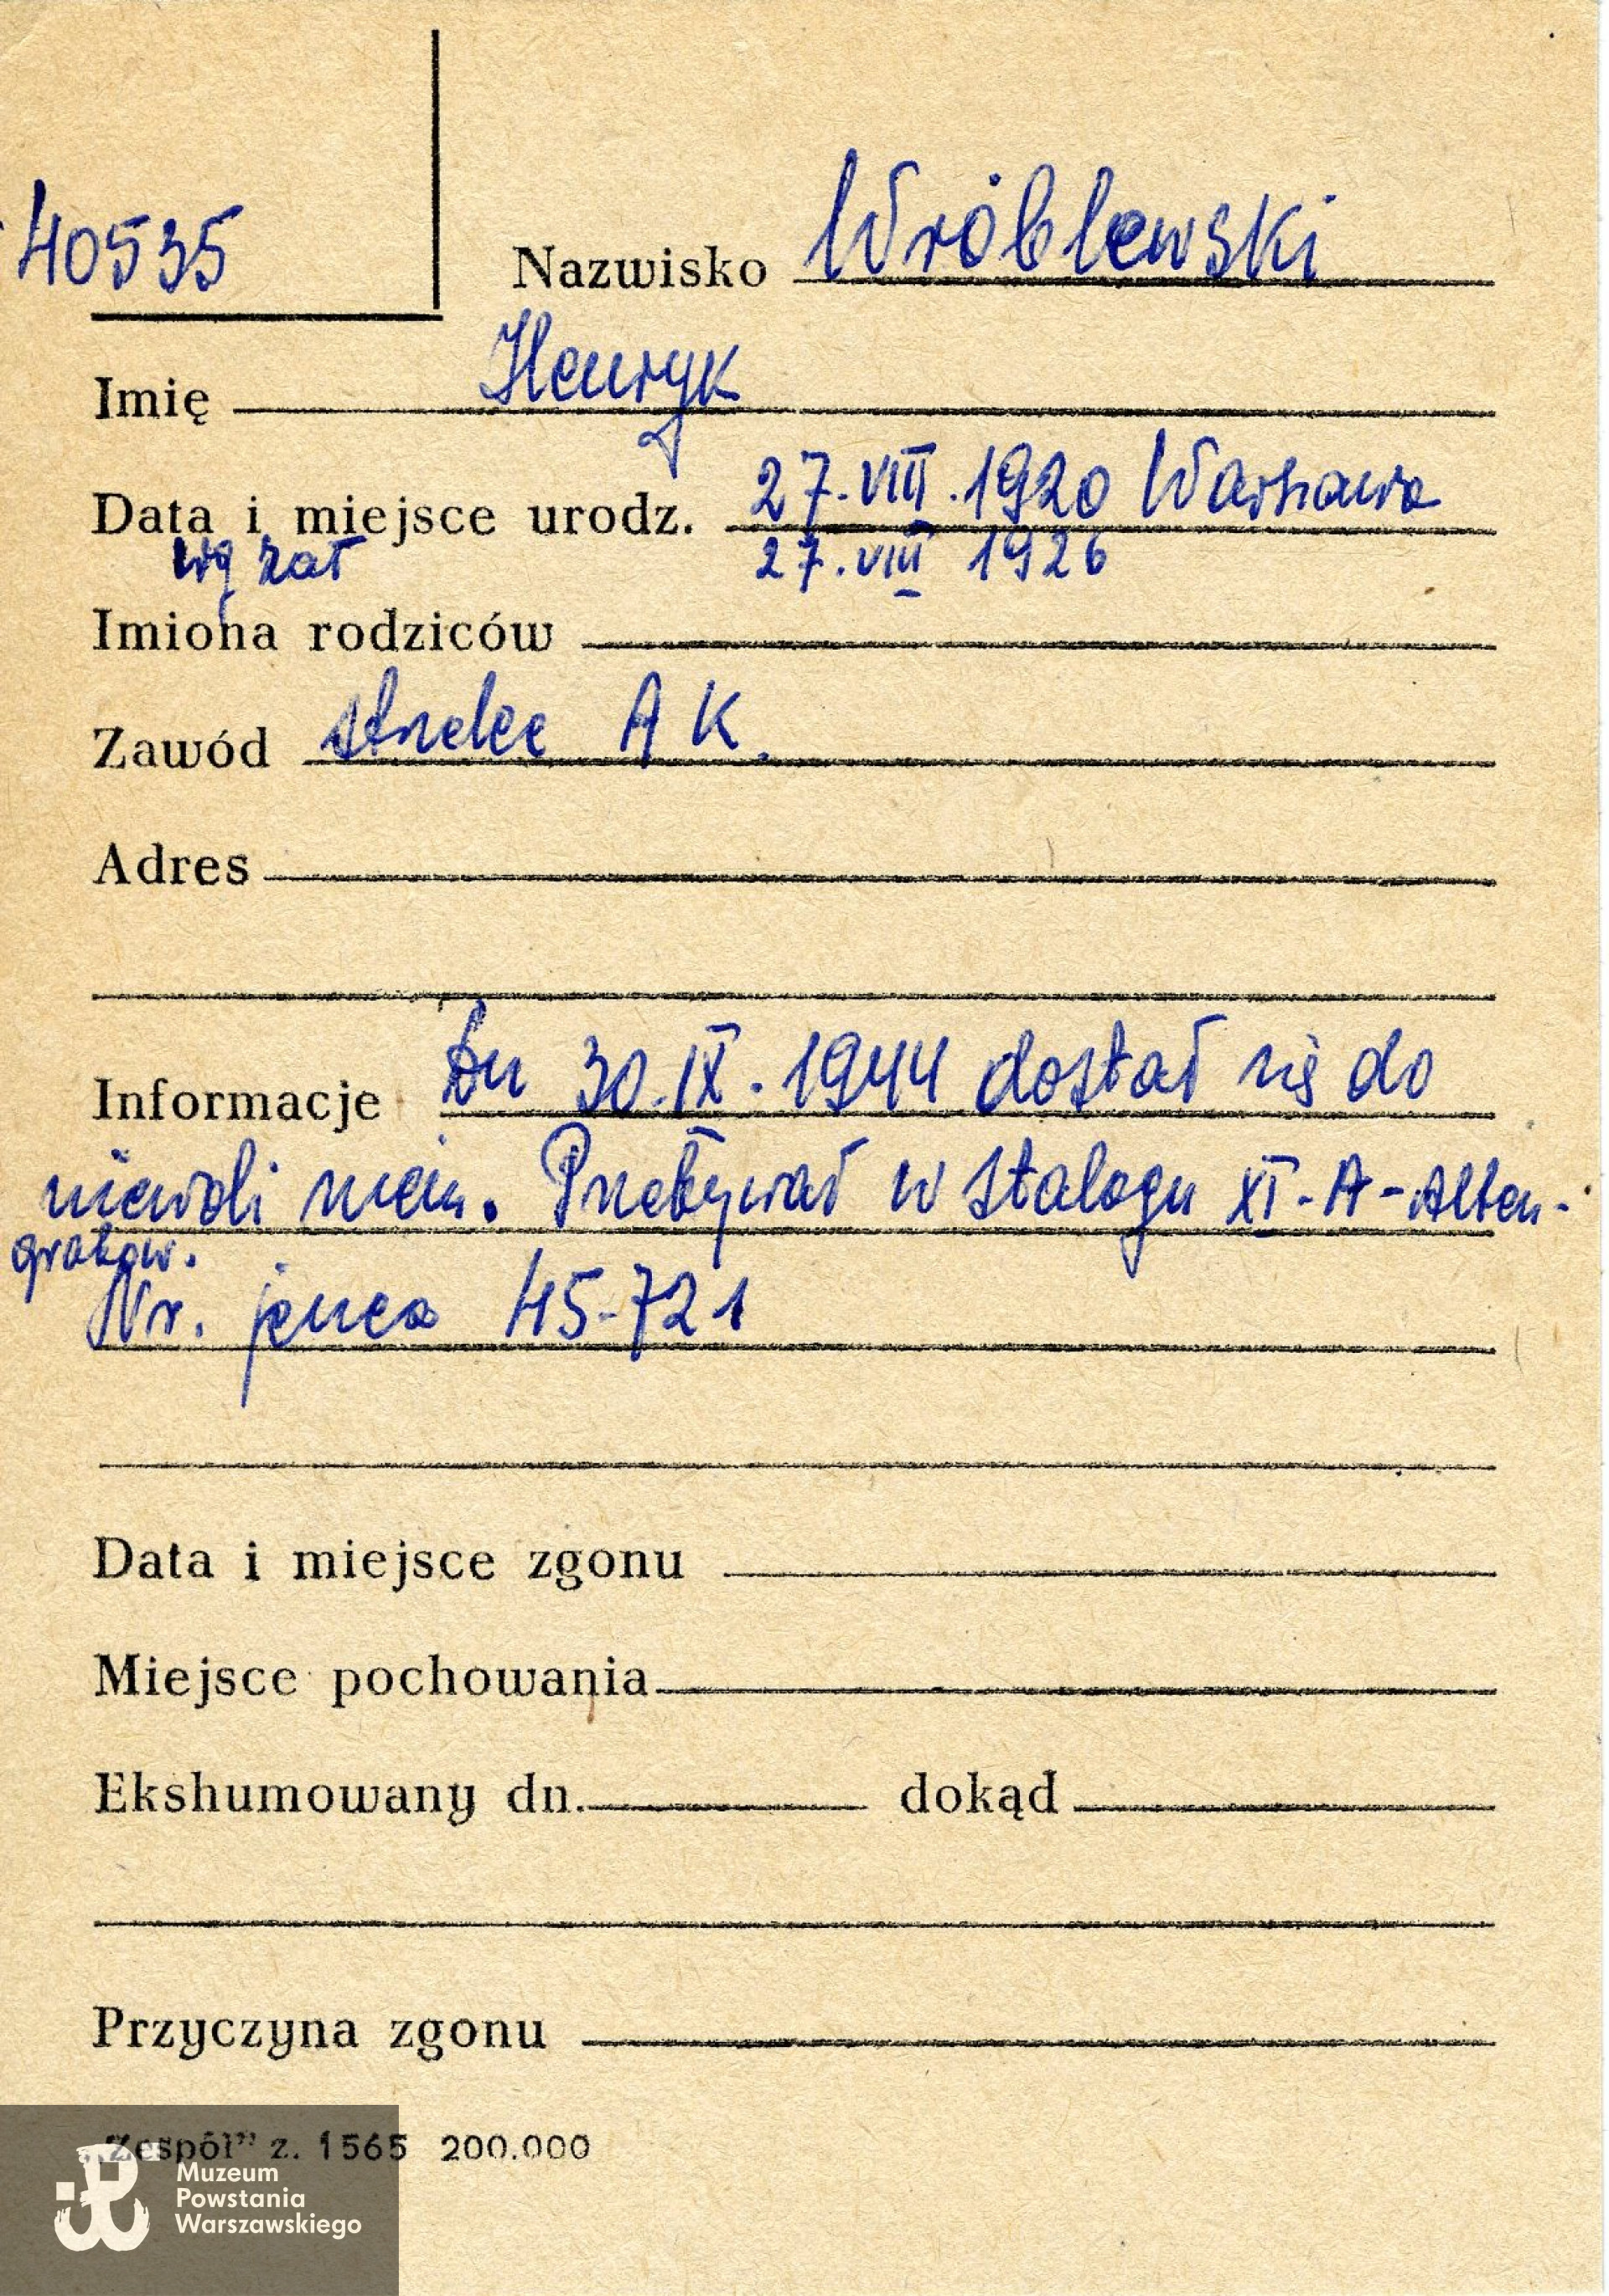 40535
Nazwisko Wróblewski
Imię Henryk
Data i miejsce urodz. 27.VIII.1920 Warszawa
wg zał 27.VIII 1926
Imiona rodziców
Zawód strzelec AK.
Adres
Informacje Dn 30.IX.1944 dostał się do
niewoli niem. Przebywał w Stalagu XI-A-Alten-
grabow.
Nr. jeńca 45-721
Data i miejsce zgonu
Miejsce pochowania
Ekshumowany dn. dokąd
Przyczyna zgonu
„Zespół” z. 1565 200.000
Muzeum
Powstania
Warszawskiego